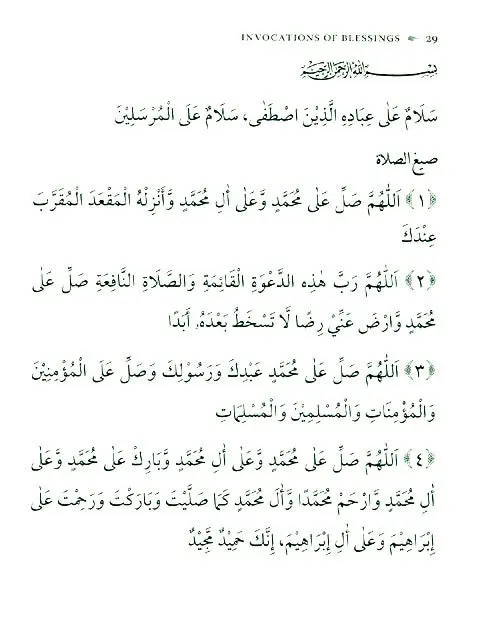 INVOCATIONS OF BLESSINGS 29
بِسْمِ اللهِ الرَّحْمٰنِ الرَّحِيْمِ
سَلَامٌ عَلٰى عِبَادِهِ الَّذِيْنَ اصْطَفٰى، سَلَامٌ عَلَى الْمُرْسَلِيْنَ
صيغ الصلاة
﴿١﴾ اَللّٰهُمَّ صَلِّ عَلٰى مُحَمَّدٍ وَّعَلٰى أٰلِ مُحَمَّدٍ وَّأَنْزِلْهُ الْمَقْعَدَ الْمُقَرَّبَ
عِنْدَكَ
﴿٢﴾ اَللّٰهُمَّ رَبَّ هٰذِهِ الدَّعْوَةِ الْقَائِمَةِ وَالصَّلَاةِ النَّافِعَةِ صَلِّ عَلٰى
مُحَمَّدٍ وَّارْضَ عَنِّيْ رِضًا لَّا تَسْخَطُ بَعْدَهُ أَبَدًا
﴿٣﴾ اَللّٰهُمَّ صَلِّ عَلٰى مُحَمَّدٍ عَبْدِكَ وَرَسُوْلِكَ وَصَلِّ عَلَى الْمُؤْمِنِيْنَ
وَالْمُؤْمِنَاتِ وَالْمُسْلِمِيْنَ وَالْمُسْلِمَاتِ
﴿٤﴾ اَللّٰهُمَّ صَلِّ عَلٰى مُحَمَّدٍ وَّعَلٰى أٰلِ مُحَمَّدٍ وَّبَارِكْ عَلٰى مُحَمَّدٍ وَّعَلٰى
أٰلِ مُحَمَّدٍ وَّارْحَمْ مُحَمَّدًا وَّأٰلَ مُحَمَّدٍ كَمَا صَلَّيْتَ وَبَارَكْتَ وَرَحِمْتَ عَلٰى
إِبْرَاهِيْمَ وَعَلٰى أٰلِ إِبْرَاهِيْمَ، إِنَّكَ حَمِيْدٌ مَّجِيْدٌ